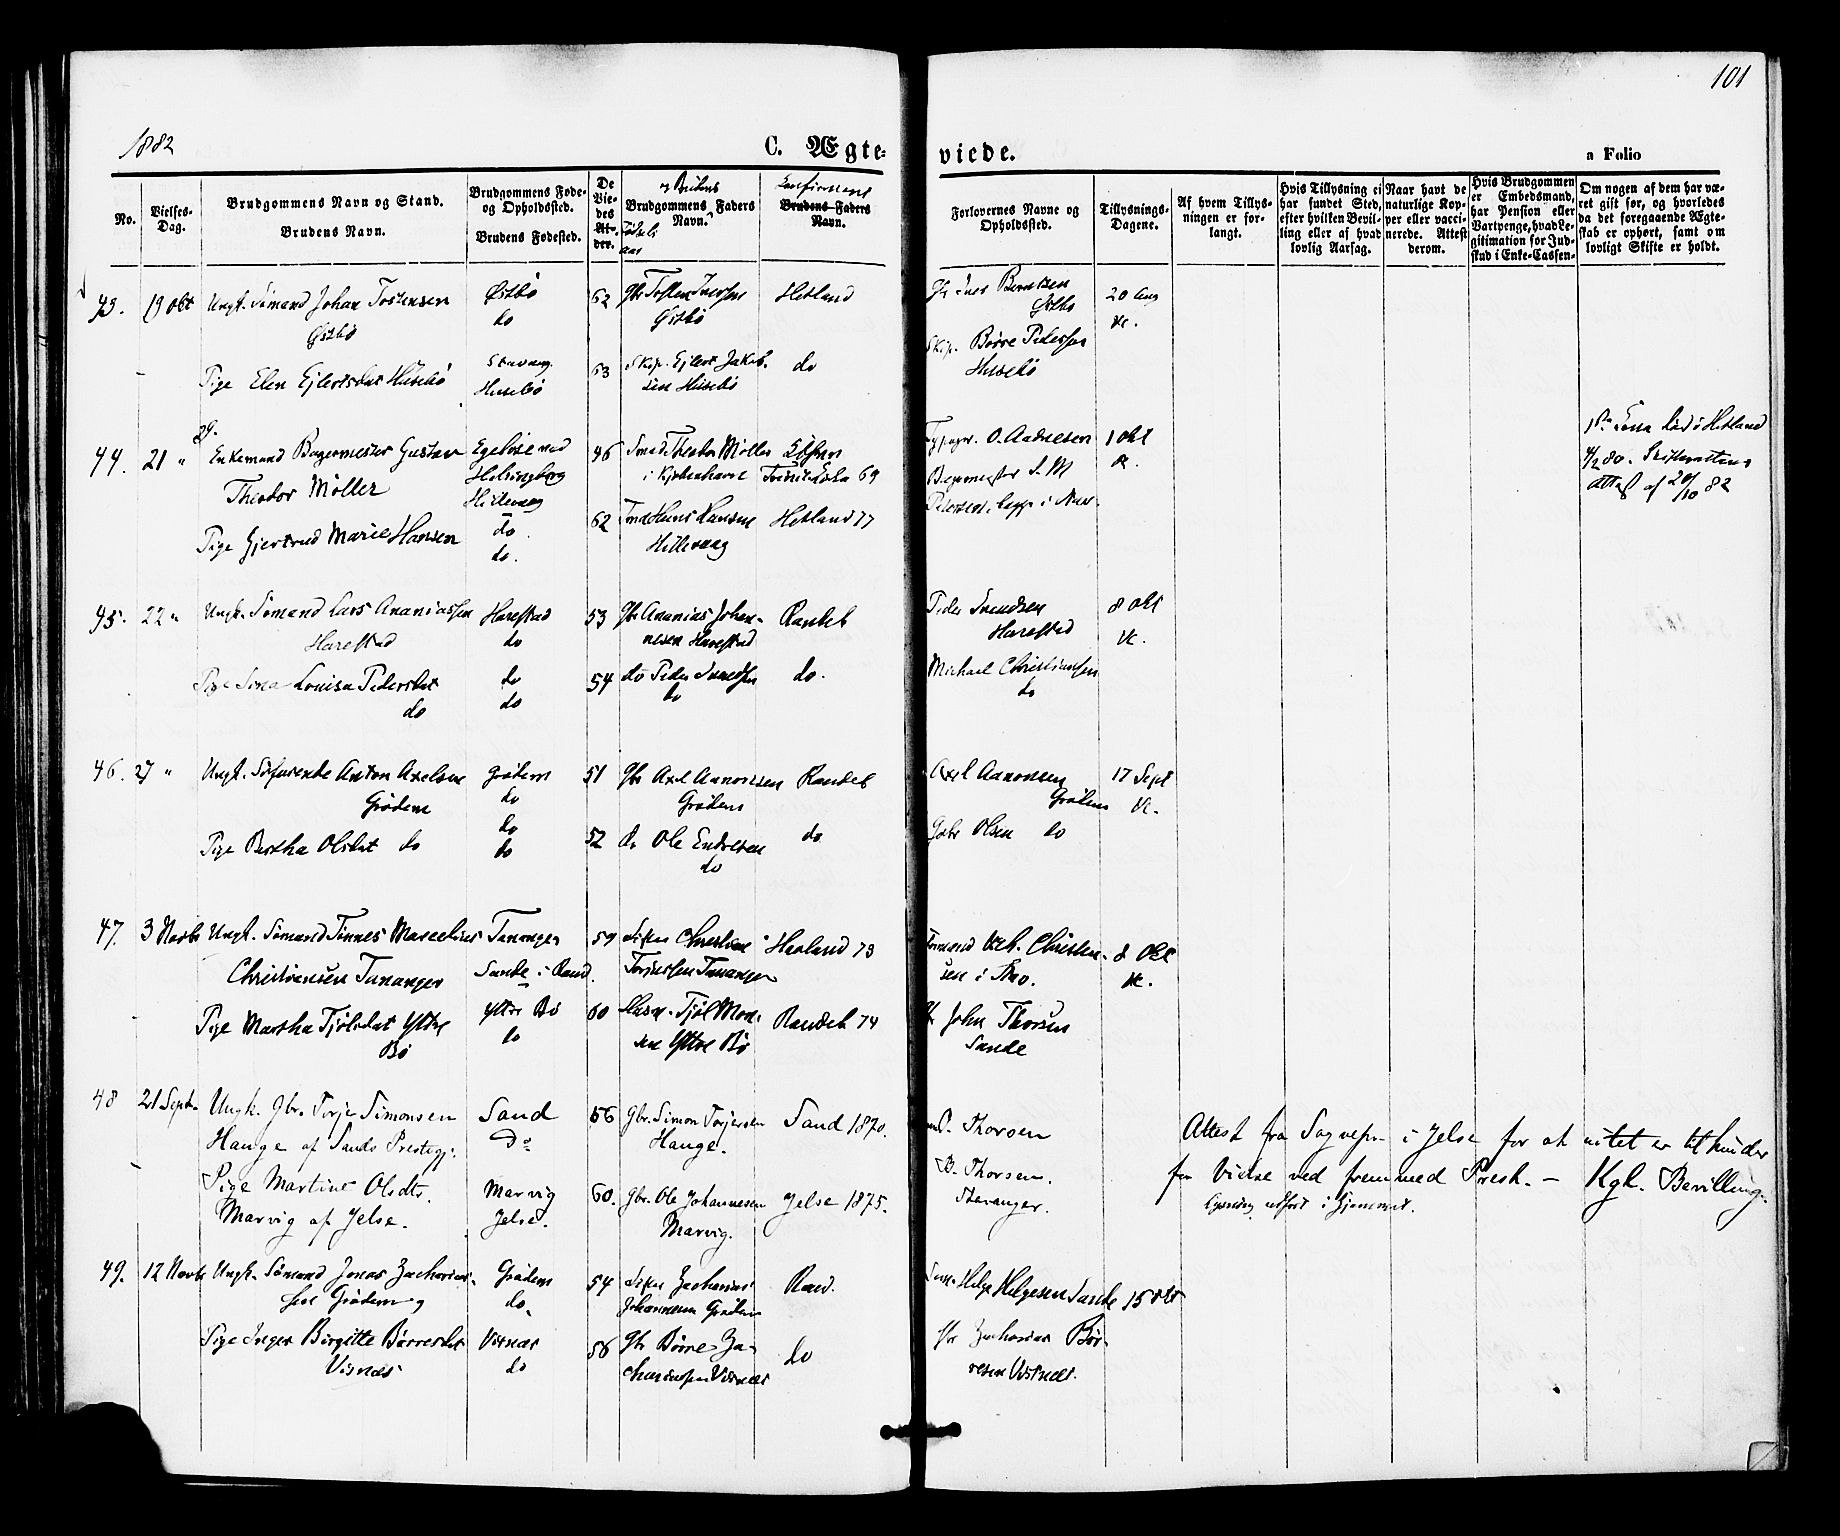 101
1882
C. Ægte-
viede.
a Folio
No.
Vielses-
Dag.
Brudgommens Navn og Stand.
Brudens Navn.
Brudgommens Føde-
og Opholdssted.
Brudens Fødested.
De
Vie-
des
Al-
der.
Fødsels
aar
og Brudens
Brudgommens Faders
Navn.
Confirmeret
Brudens Faders
Navn.
Forlovernes Navne og
Opholdssted.
Tillysnings-
Dagene.
Af hvem Tillys-
ningen er for-
langt.
Hvis Tillysning ei
har fundet Sted,
efter hvilken Bevil-
ling eller af hvad
lovlig Aarsag.
Naar havt de
naturlige Kop-
per eller vacci-
nerede. Attest
derom.
Hvis Brudgommen
er Embedsmand,
har Pension eller
Vartpenge, hvad Le-
gitimation for Ind-
skud i Enke-Cassen-
Om nogen af dem har væ-
ret gift før, og hvorledes
da det foregaaende Ægte-
skab er ophørt, samt om
lovligt Skifte er holdt.
43. 19 Okt Ungk. Sømand Johan Tostensen
Østbø
Østbø
do
62 Gbr Tosten Iversen
Østbø
Hetland
Iver Berntsen
Østbø
20 Aug
Pige Elen Ejlertsdat Husebø
Stavang.
Husebø
63 Skip. Ejlert Jakob-
sen Husebø
do
Skip. Børre Pedersen
Husebø
44. 21 " Enkemand Bagermester Gustav
Theodor Møller
Egelose ved
Helsingborg
Hillevaag
46 Smed Theodor Møller
i Kjøbenhavn
69
Typogr. O. Andresen
1 Okt
Bagermester S. M
Pedersen
4/2 80.
Attest af 20/10 82
Pige Gjertrud Marie Hansen
do.
do.
62 Hans Hansen
Hillevaag
Hetland 77
45. 22 " Ungk. Sømand Lars Ananiassen
Harestad
Harestad
do
53 Gbr Ananias Johan-
nesen Harestad
Randeb
Peder Svendsen
Harestad
8 Okt
Pige Lovisa Pedersdat
do
do
do
54 do Peder Svendsen
do
do.
Michael Christiansen
do
46. 27 " Ungk. Søfarende Anton Axelsen
Grødem
Grødem
do
51 Gbr Axel Aanonsen
Grødem
Randeb
Axel Aanonsen
Grødem
17 Sept
Pige Bertha Olsdat do
do
do
52 do Ole Endresen
do
do
Gabr Olsen do
47. 3 Novbr Ungk. Sømand Tønnes Marcelius
Christiansen Tananger
Tananger
Sande i Rand.
59 Christian
Torjussen Tananger
Haaland 73
Christen-
sen i
8 Okt
Pige Martha Tjølsdat Yttre
Bø
Yttre Bø
do
60 Husm. Tjøl Mon-
sen Yttre Bø
Randeb 74
John Thorsen
Sande
48 21 Septr Ungk. Gbr. Torje Simonsen
Hauge af Sands Prestegj.
Sand
Do
56 Gbr. Simon Torjersen
Hauge.
Sand 1870.
P. Thorsen
Attest fra Sognepr. i Jelse for at intet er til hinder
for Vielse ved fremmed Presk. — Kgl. Bevilling.
Lysning udført i Hjemmet.
Pige Martine Olsdtr.
Marvig af Jelse.
Marvig
Jelse.
60. Gbr. Ole Johannesen
Marvig.
Jelse 1875.
B. Thorsen.
Stavanger.
49. 12 Novbr Ungk. Sømand Jonas Zacharias-
sen Grødem
Grødem
do.
54 Zacharias
Johannesen Grødem
Rand.
Helge Helgesen Sande 15 Okt
Pige Inger Birgitte Børresdat
Visnæs
Visnæs
do
56 Gbr Børre Za-
chariassen Visnæs
do
Gbr Zacharias Bør-
resen Visnæs.